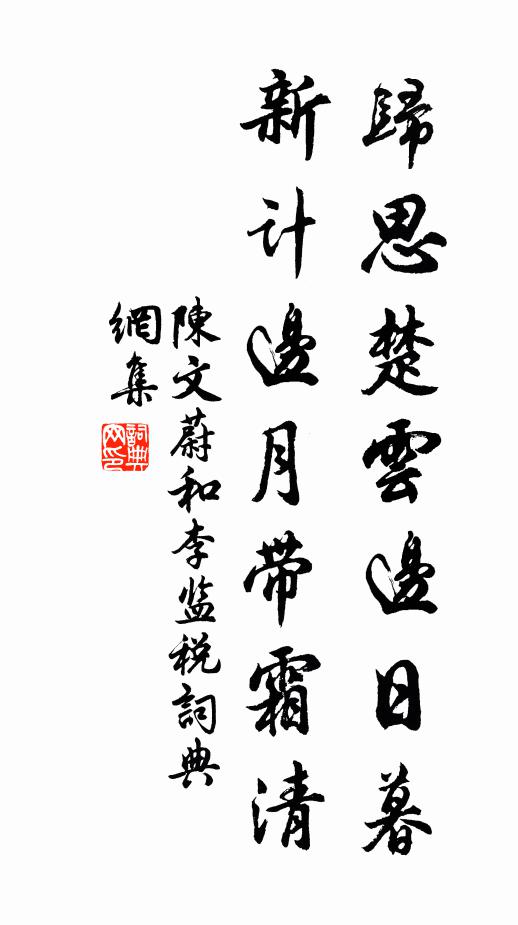 歸思楚雲邊日暮
新计邊月带霜清
陳文蔚和李监税詞典
網集
詞典网印